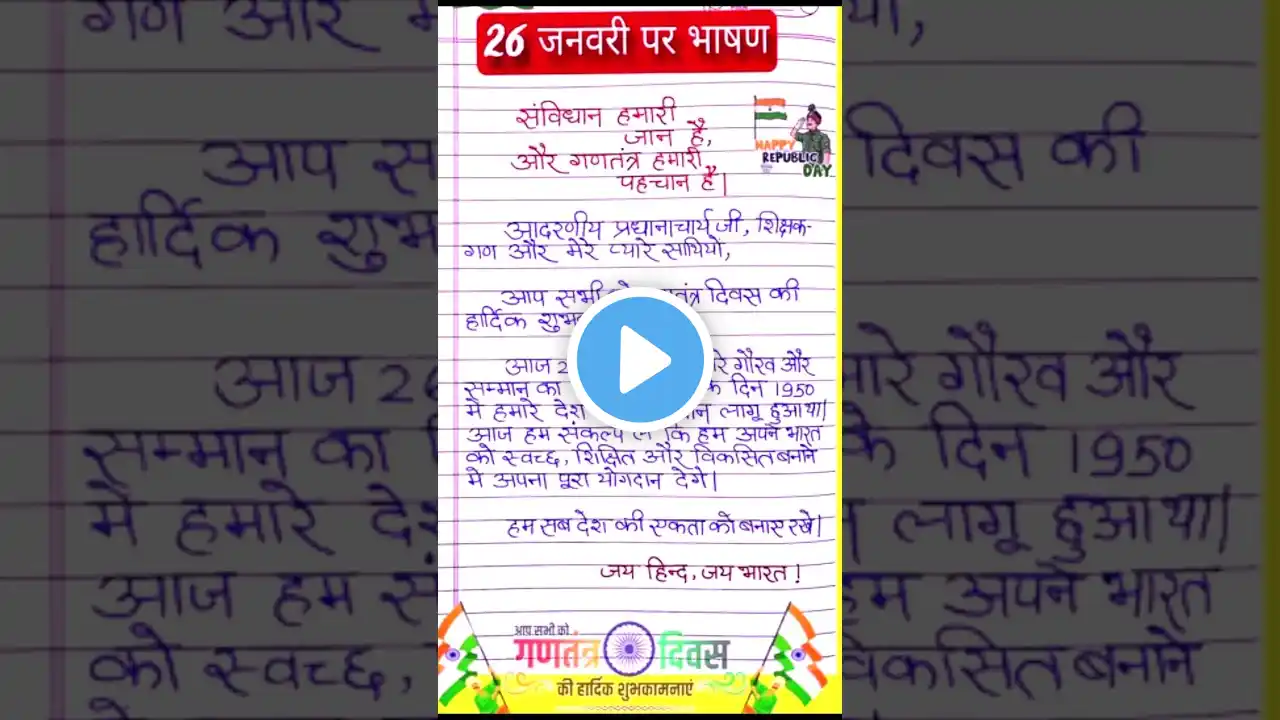 26 जनवरी पर भाषण
संविधान हमारी
जान है,
और गणतंत्र हमारी
पहचान है।
HAPPY
REPUBLIC
DAY
आदरणीय प्रधानाचार्य जी, शिक्षक-
गण और मेरे प्यारे साथियो,
आप सभी दिवस की
हार्दिक
आज गौरव और
सम्मान का के दिन 1950
में हमारे देश लागू हुआ था।
आज हम संकल्प कि हम अपने भारत
को स्वच्छ, शिक्षित और विकसित बनाने
मे अपना पूरा योगदान देगे।
हम सब देश की एकता को बनाए रखे।
जय हिन्द, जय भारत!
आप सभी को
गणतंत्र दिवस
की हार्दिक शुभकामनाएं